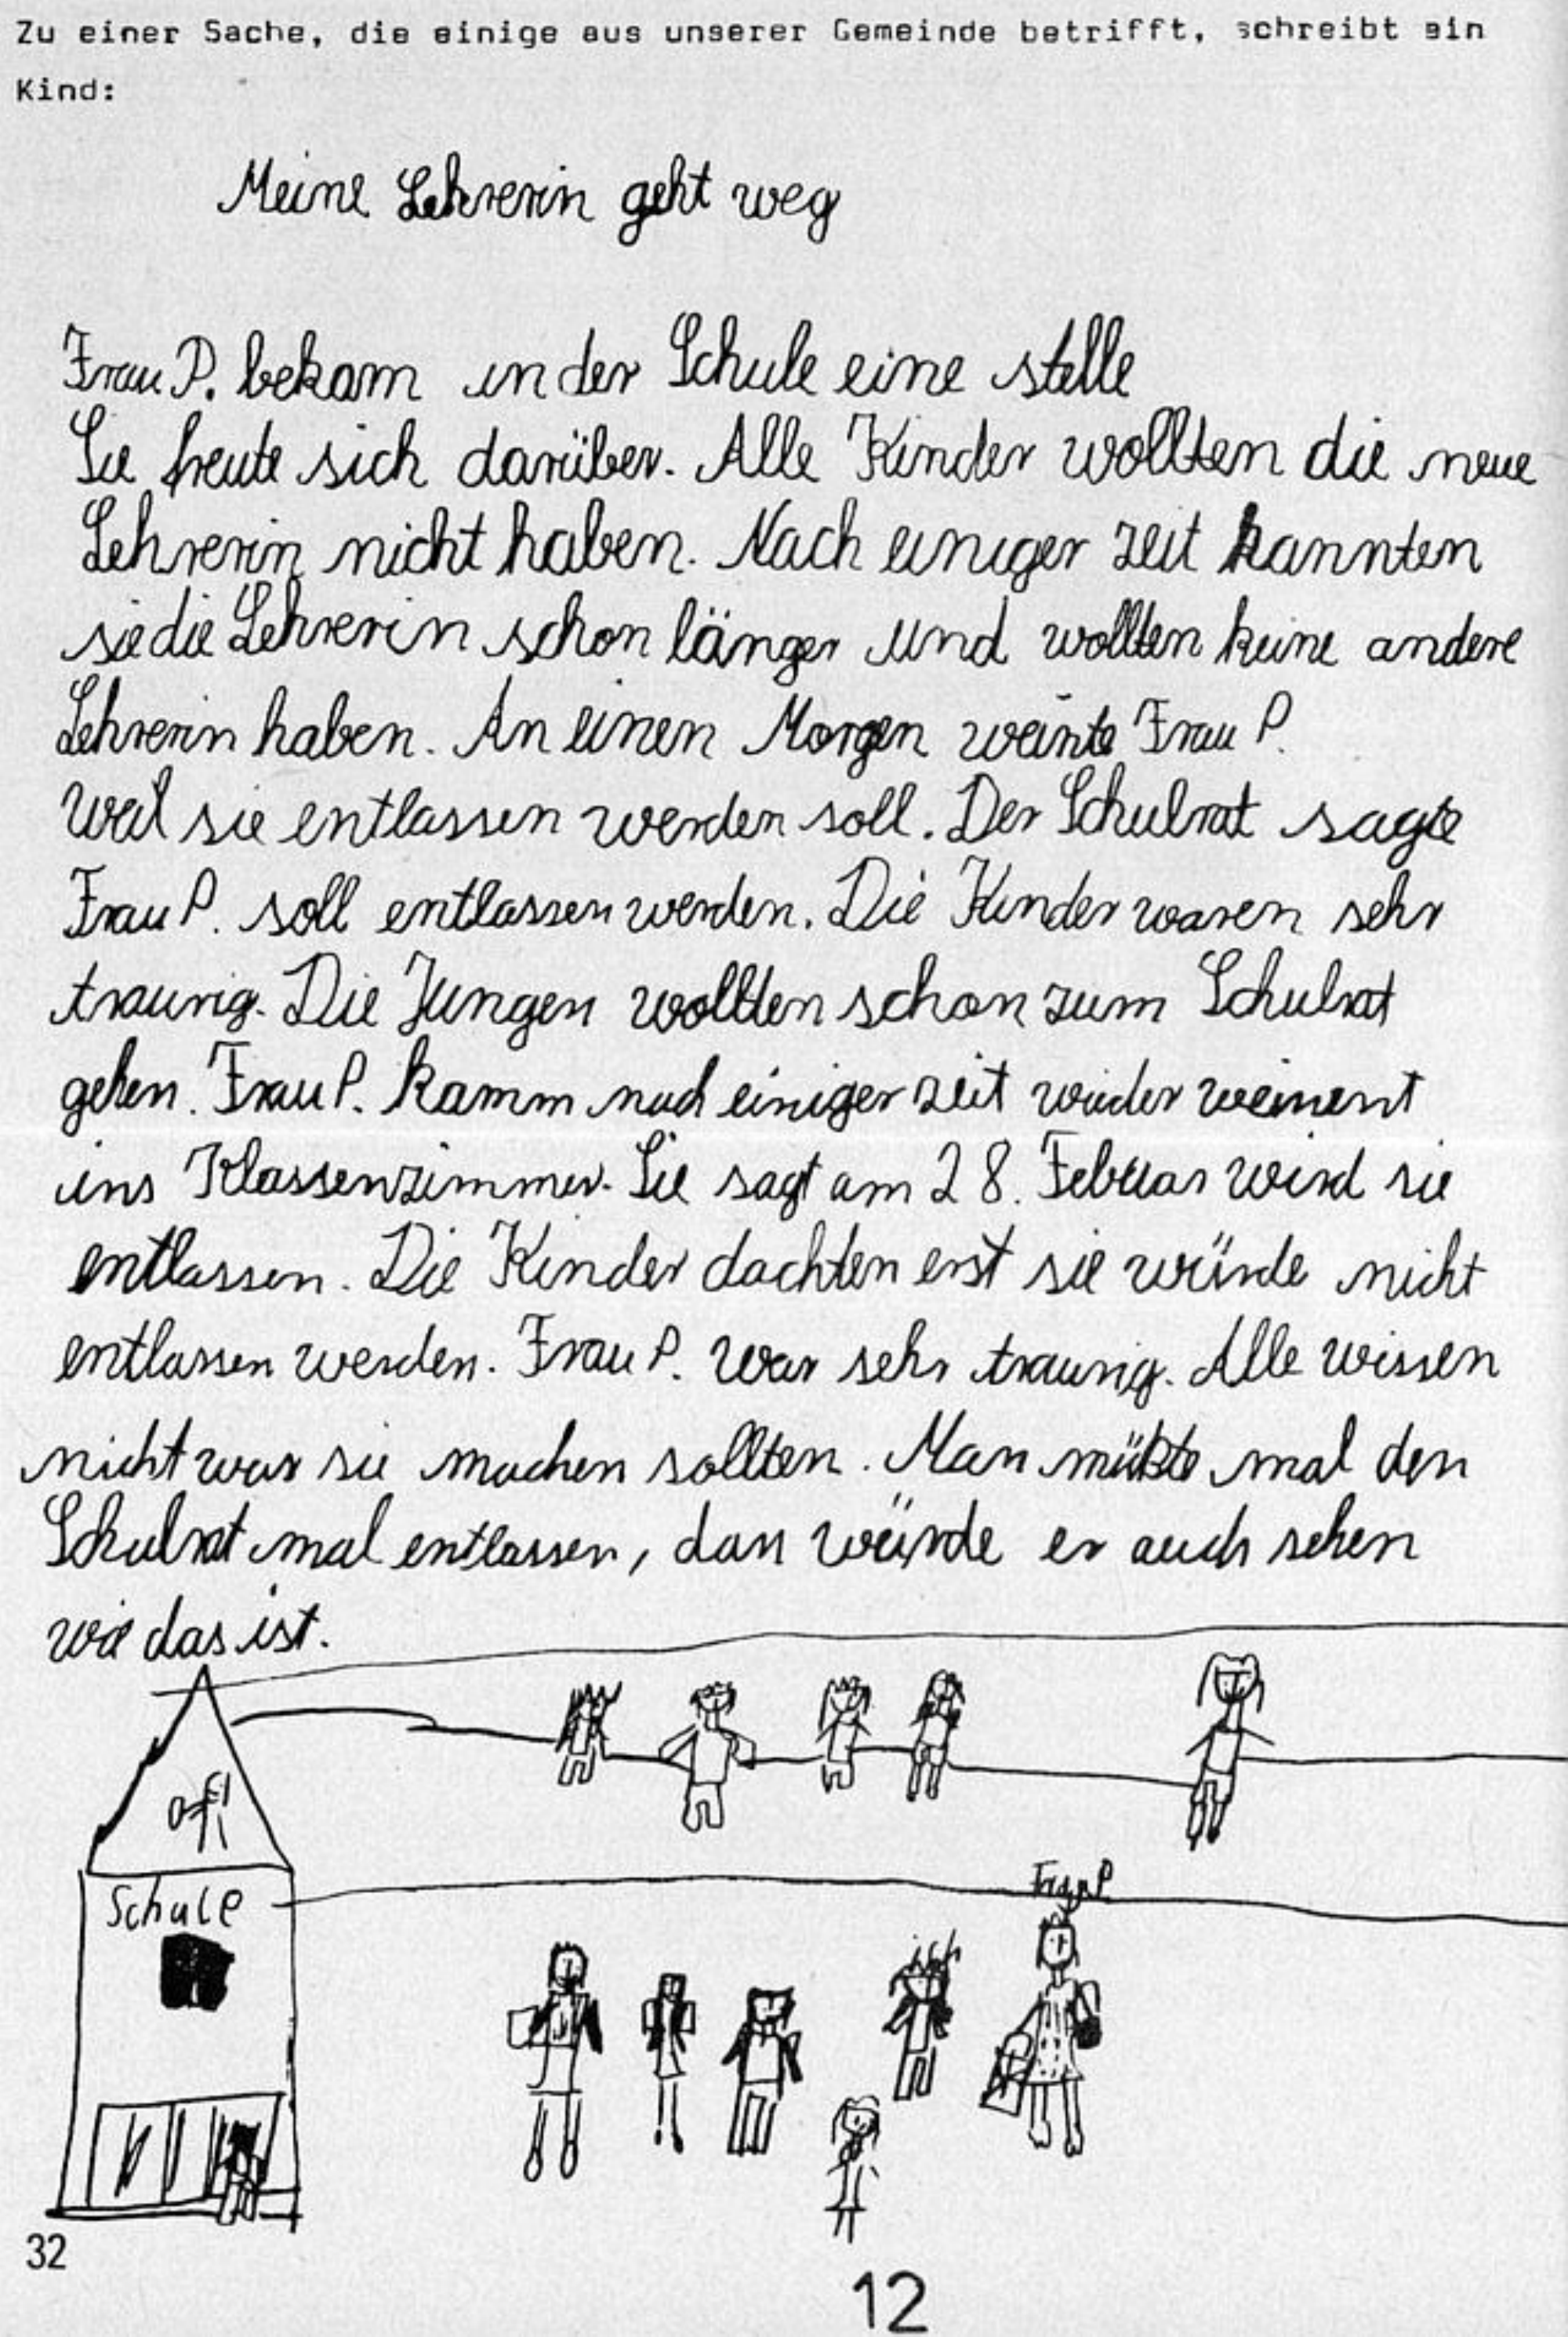 Zu einer Sache, die einige aus unserer Gemeinde betrifft, schreibt ein
Kind:
Meine Lehrerin geht weg
Frau P. bekam in der Schule eine stelle
Sie freute sich darüber. Alle Kinder wollten die neue
Lehrerin nicht haben. Nach einiger zeit kannten
sie die Lehrerin schon länger und wollten keine andere
Lehrerin haben. An einen Morgen weinte Frau P.
Weil sie entlassen werden soll. Der Schulrat sagte
Frau P. soll entlassen werden. Die Kinder waren sehr
traurig. Die Jungen wollten schon zum Schulrat
gehen. Frau P. kamm nach einiger zeit wieder weinent
ins Klassenzimmer. Sie sagt am 28. Februar wird sie
entlassen. Die Kinder dachten erst sie würde nicht
entlassen werden. Frau P. war sehr traurig. Alle wissen
nicht was sie machen sollten. Man müßte mal den
Schulrat mal entlassen, dan würde er auch sehen
wie das ist.
Schule
Frau P
ich
32
12